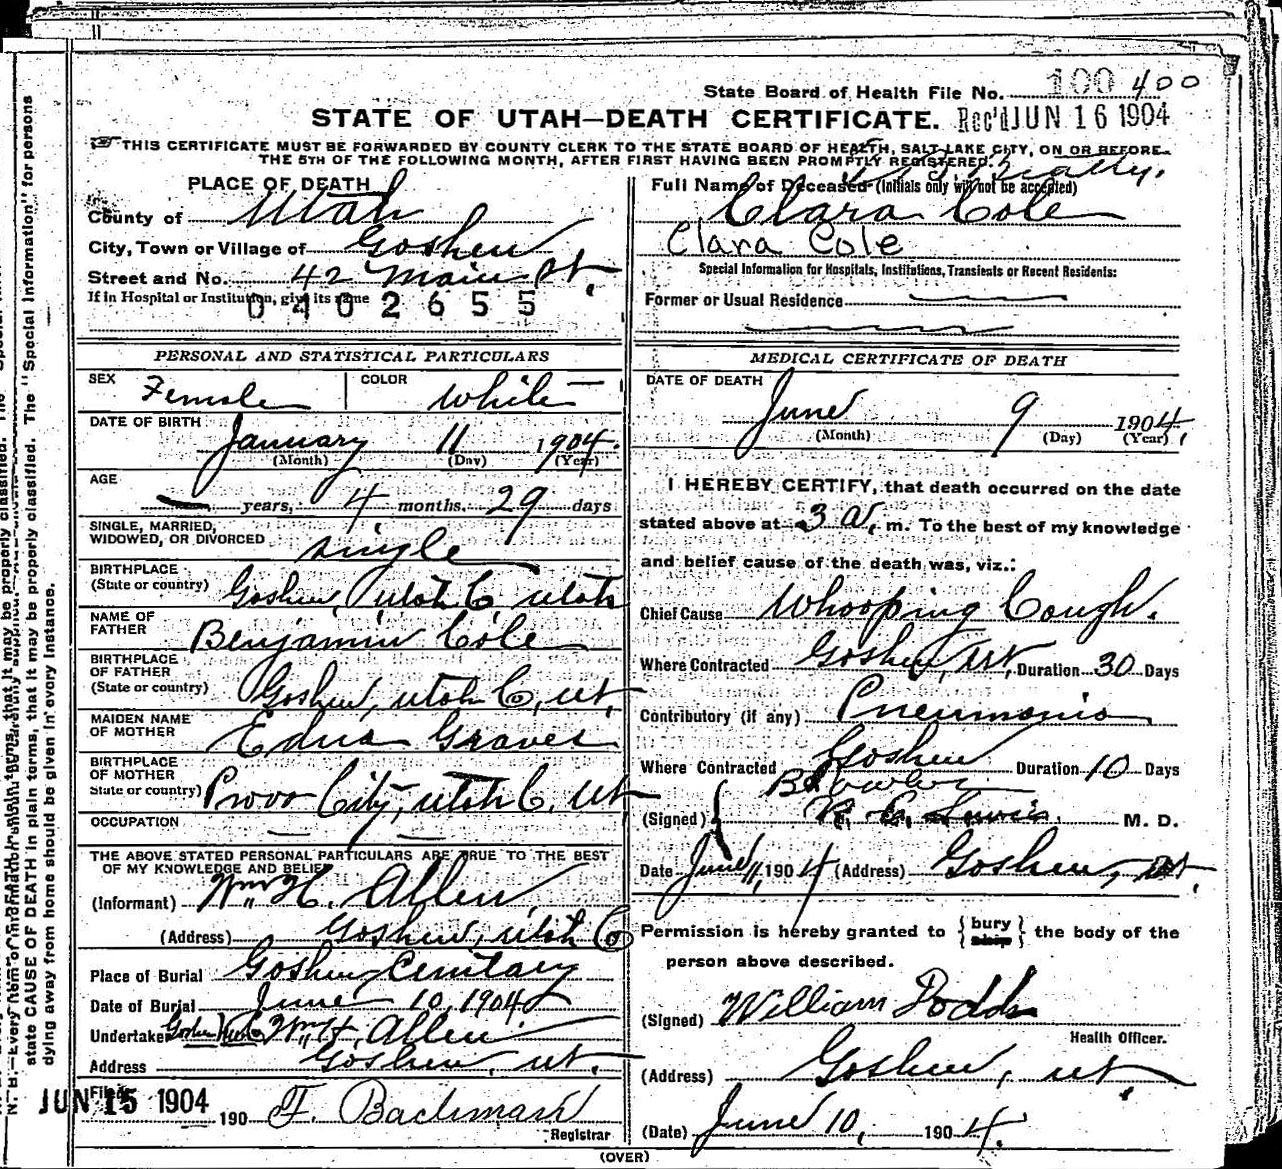 State Board of Health File No. 100 400
STATE OF UTAH—DEATH CERTIFICATE. Rec'd JUN 16 1904
THIS CERTIFICATE MUST BE FORWARDED BY COUNTY CLERK TO THE STATE BOARD OF HEALTH, SALT LAKE CITY, ON OR BEFORE
THE 5TH OF THE FOLLOWING MONTH, AFTER FIRST HAVING BEEN PROMPTLY REGISTERED.
Beatty.
PLACE OF DEATH
County of Utah
City, Town or Village of Goshen
Street and No. 42 Main St.
If in Hospital or Institution, give its name
0402655
Full Name of Deceased (Initials only will not be accepted)
Clara Cole
Clara Cole
Special Information for Hospitals, Institutions, Transients or Recent Residents:
Former or Usual Residence
PERSONAL AND STATISTICAL PARTICULARS
SEX Female COLOR White
DATE OF BIRTH
January 11 1904.
(Month) (Day) (Year)
AGE
— years, 4 months, 29 days
SINGLE, MARRIED,
WIDOWED, OR DIVORCED single
BIRTHPLACE
(State or country) Goshen, Utah Co, Utah
NAME OF
FATHER Benjamin Cole
BIRTHPLACE
OF FATHER
(State or country) Goshen, Utah Co, Ut.
MAIDEN NAME
OF MOTHER Edna Graves
BIRTHPLACE
OF MOTHER
State or country) Provo City, Utah Co, Ut
OCCUPATION — —
THE ABOVE STATED PERSONAL PARTICULARS ARE TRUE TO THE BEST
OF MY KNOWLEDGE AND BELIEF
(Informant) Wm. H. Allen
(Address) Goshen, Utah Co
Place of Burial Goshen Cemitary
Date of Burial June 10, 1904
Undertaker Goshen Wm H. Allen
Address Goshen, Ut.
Filed
JUN 15 1904 190 F. Bachman
Registrar
MEDICAL CERTIFICATE OF DEATH
DATE OF DEATH
June 9 1904,
(Month) (Day) (Year)
I HEREBY CERTIFY, that death occurred on the date
stated above at 3 a. m. To the best of my knowledge
and belief cause of the death was, viz.:
Chief Cause Whooping Cough.
Where Contracted Goshen, Ut, Duration 30 Days
Contributory (if any) Pneumonia
Where Contracted Goshen Duration 10 Days
(Signed) M. D.
Date June 11, 1904 (Address) Goshen, Ut.
Permission is hereby granted to {bury ship} the body of the
person above described.
(Signed) William Dodds
Health Officer.
(Address) Goshen, Ut.
(Date) June 10, 1904.
(OVER)
state CAUSE OF DEATH in plain terms, that it may be properly classified. The "Special Information" for persons
dying away from home should be given in every instance.